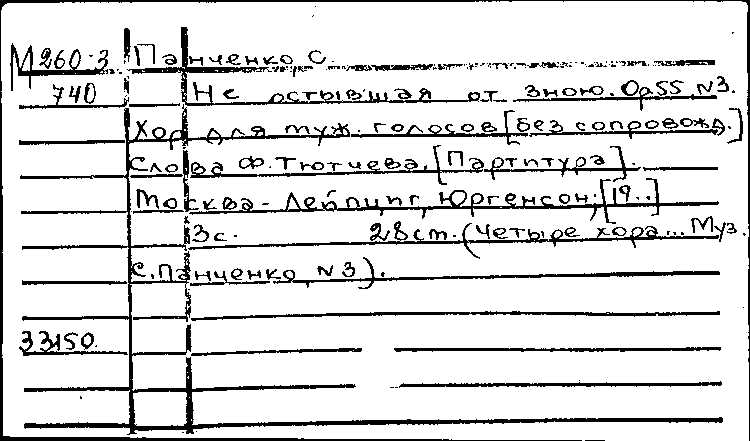 М260-3 Панченко, С.
740 Не остывшая от зною. Op55, N3.
Хор для муж. голосов [без сопровожд.]
Слова Ф. Тютчева. [Партитура].
Москва - Лейпциг, Юргенсон, [19..]
3с. 28 ст. (Четыре хора... Муз.
С. Панченко, N3).
33150